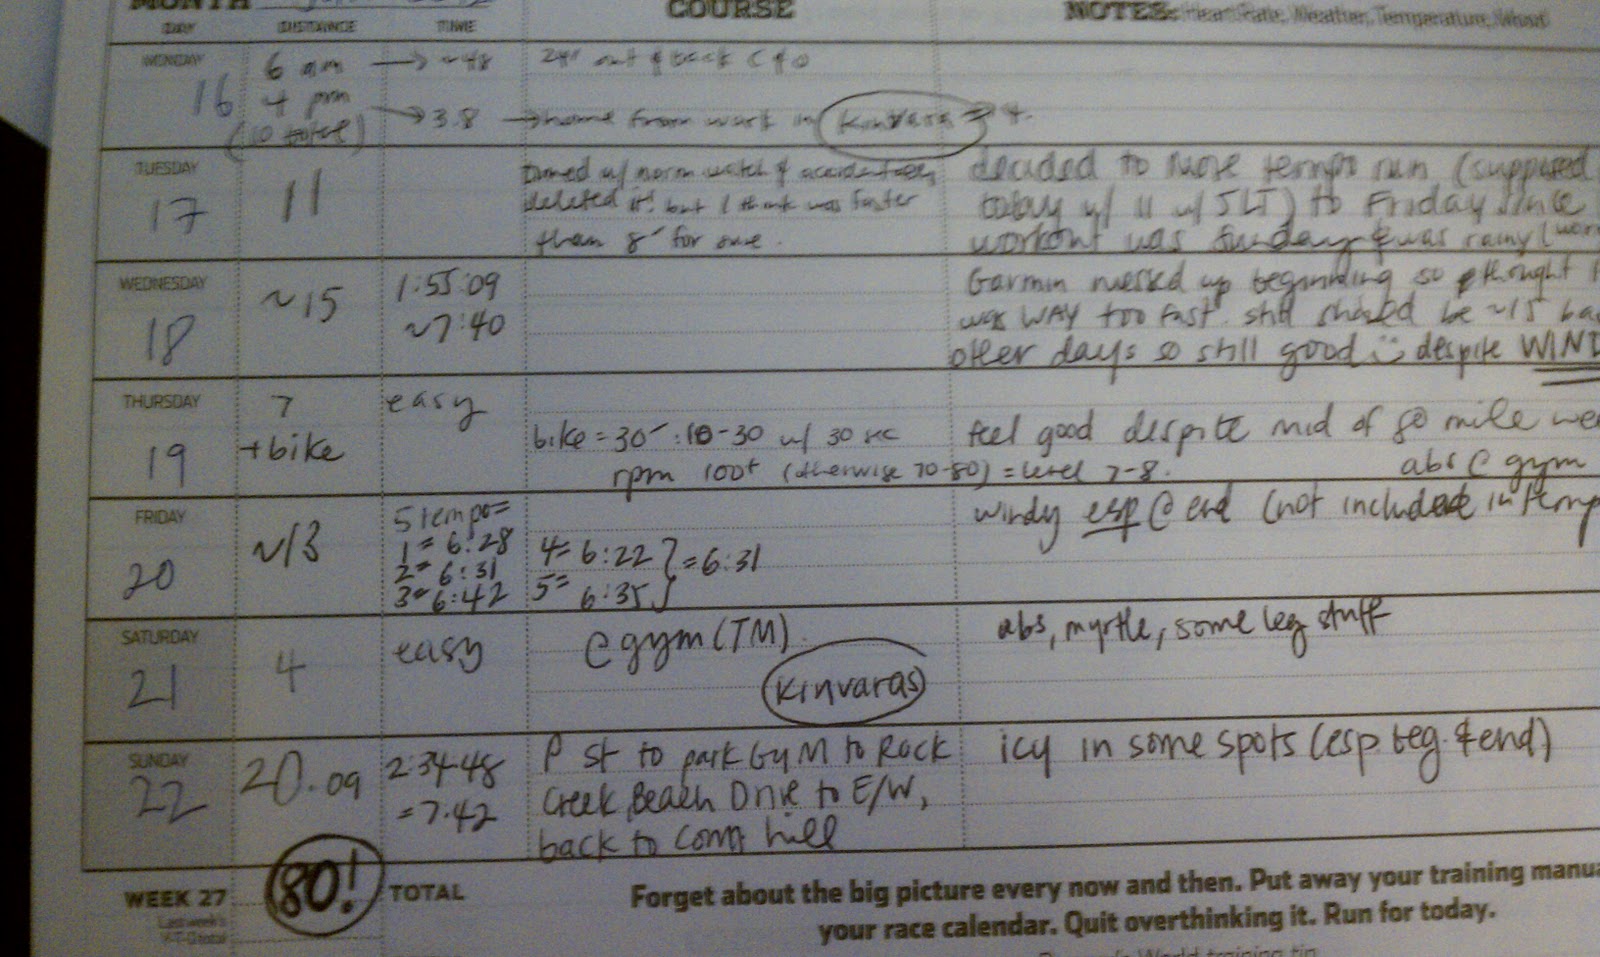 MONTH
COURSE
NOTES: Heart Rate, Weather, Temperature, Wind
DAY DISTANCE TIME
MONDAY
16
6 am → ~48
24 out & back C & O
4 pm
(10 total)
→ 3.8 → home from work in Kinvara → 4.
TUESDAY
17
11
timed w/ norm watch & accidentally
deleted it! but I think was faster
than 8 for sure.
decided to move tempo run (supposed
today w/ 11 w/ JLT) to Friday since
workout was Sunday & was rainy
WEDNESDAY
18
~15
1:55:09
~7:40
Garmin messed up beginning so thought I
was WAY too fast. still should be ~15
other days so still good despite WIND
THURSDAY
19
7
+bike
easy
bike = 30 : 10-30 w/ 30 sec
rpm 100+ (otherwise 70-80) = level 7-8.
feel good despite mid of 80 mile
abs @ gym
FRIDAY
20
~13
5 tempo=
1= 6:28
2= 6:31
3= 6:42
4= 6:22
5= 6:35
} = 6:31
windy esp @ end (not included in
SATURDAY
21
4
easy
@ gym (TM)
Kinvaras
abs, myrtle, some leg stuff
SUNDAY
22
20.09
2:34:48
= 7:42
P St to park Gym to Rock
Creek, Beach Drive to E/W,
back to Conn hill
icy in some spots (esp beg. & end)
WEEK 27
80!
TOTAL
Last week's
Y-T-D total
Forget about the big picture every now and then. Put away your training
your race calendar. Quit overthinking it. Run for today.
World training tip